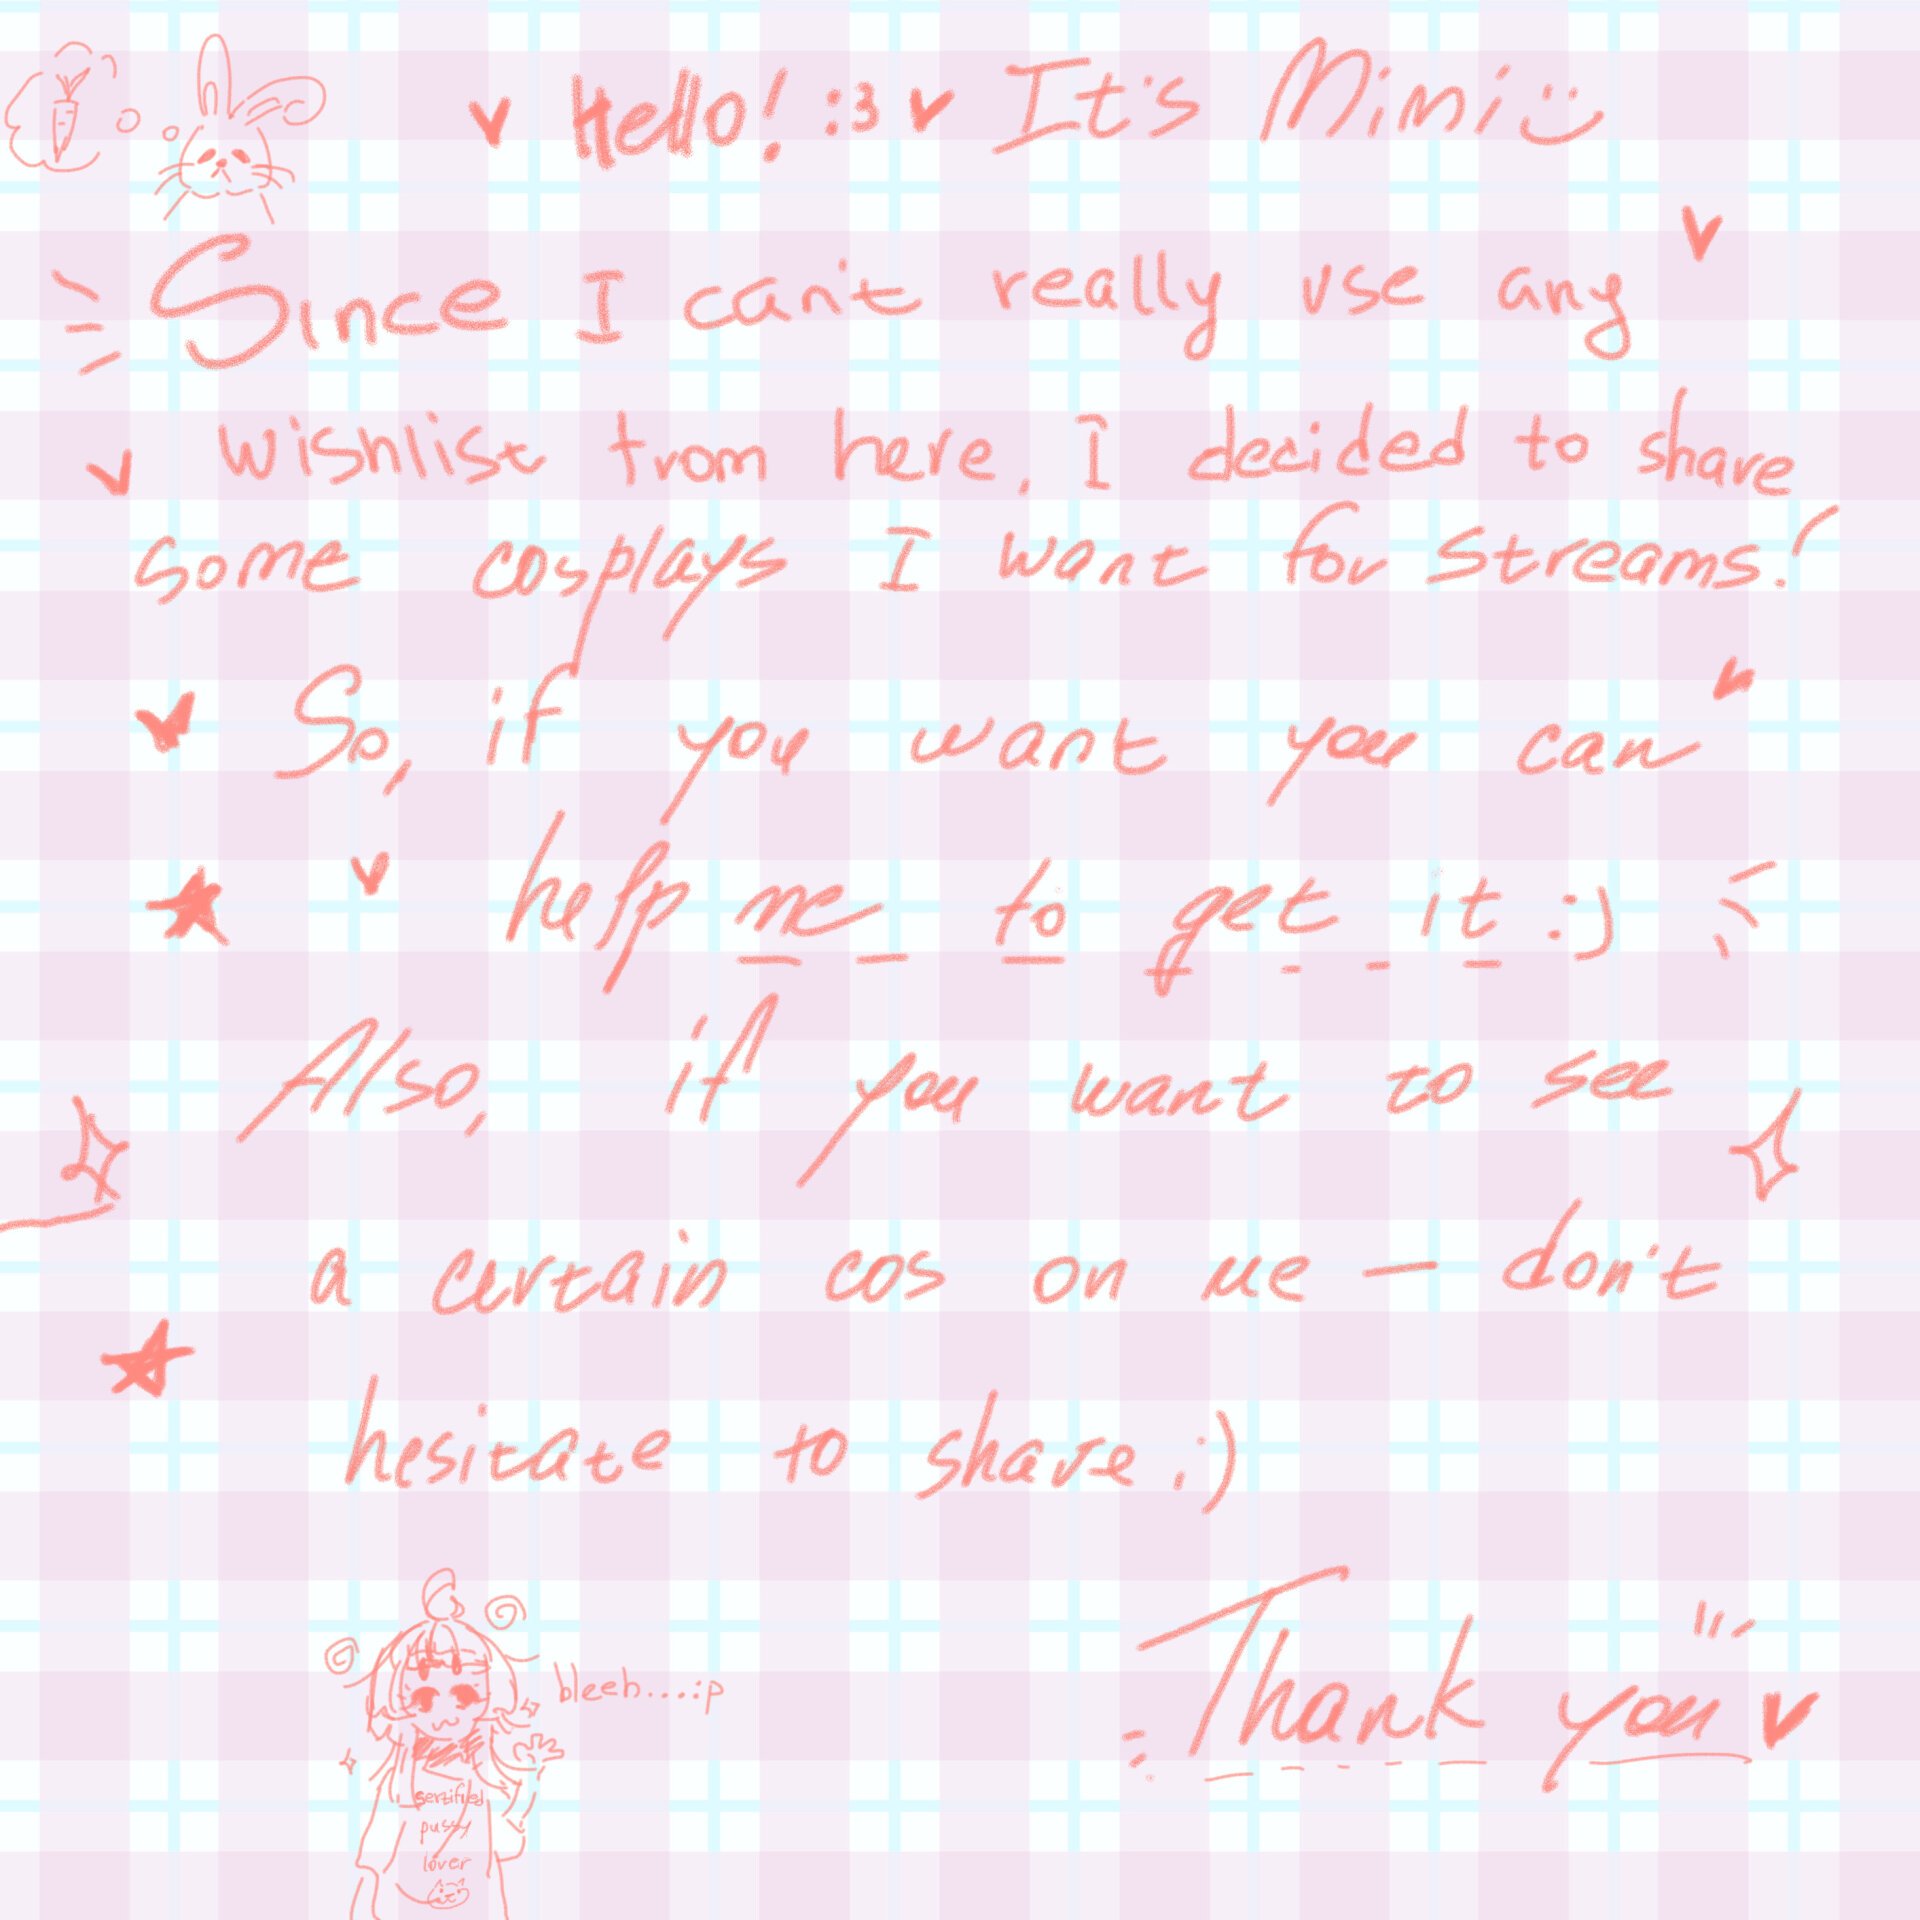 Hello! :3 It's Mimi
Since I can't really use any
wishlist from here, I decided to share
some cosplays I want for streams!
So, if you want you can
help me to get it :)
Also, if you want to see
a certain cos on me — don't
hesitate to share :)
bleeh...:p
Thank you
sertified
pussy
lover